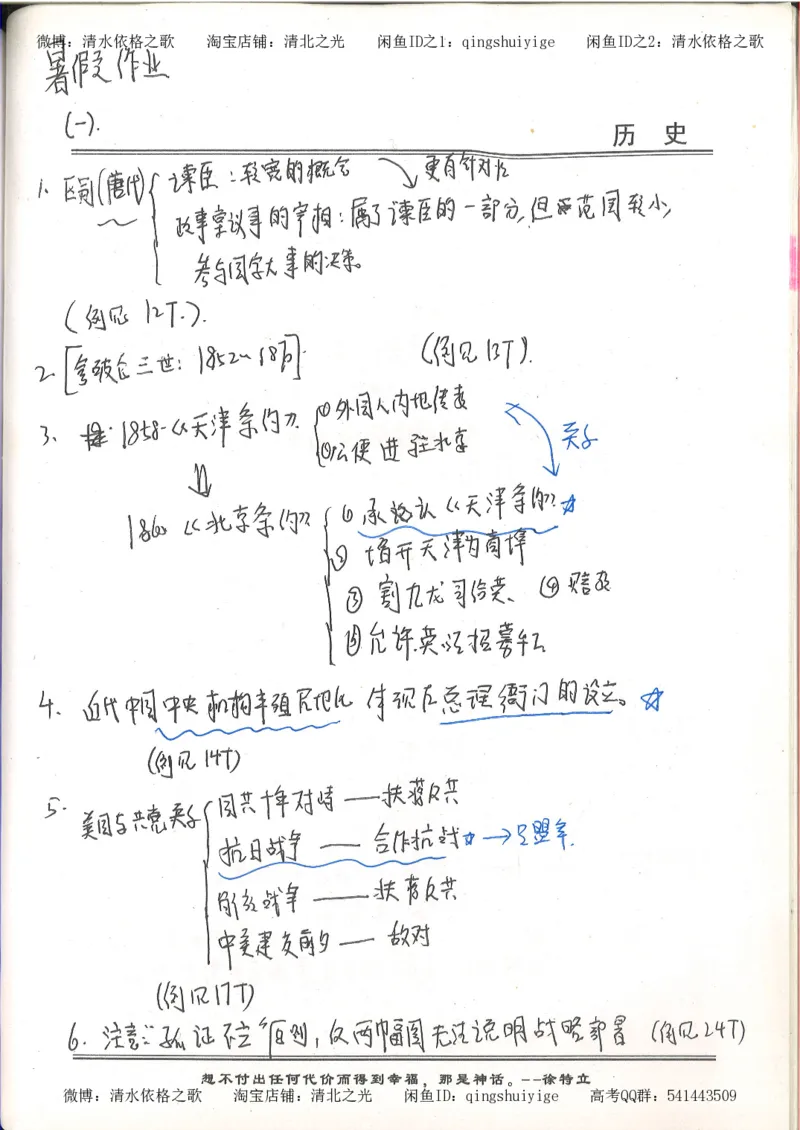 微博：清水依格之歌 淘宝店铺：清北之光 闲鱼ID之1：qingshuiyige 闲鱼ID之2：清水依格之歌
暑假作业
(一).
历 史
1. 区别(唐代) 谏臣：较宽的概念 更有针对性
政事堂议事的宰相：属于谏臣的一部分,但范围较小,
参与国家大事的决策。
(例见12T.).
2. [拿破仑三世：1852~1870]. (例见13T).
3. 1858《天津条约》 ①外国人内地传教 关系
②公使进驻北京
1860《北京条约》 ①承认《天津条约》☆
②增开天津为商埠
③割九龙司给英、④赔款
⑤允许英法招募华工
4、近代中国中央机构半殖民地化体现在总理衙门的设立。☆
(例见14T)
5. 美国与共党关系 国共十年对峙——扶蒋反共
抗日战争——合作抗战☆→同盟军.
解放战争——扶蒋反共
中美建交前夕——敌对
(例见17T)
6. 注意：“孤证不立”原则,仅两幅图无法说明战略部署 (例见24T)
想不付出任何代价而得到幸福，那是神话。--徐特立
微博：清水依格之歌 淘宝店铺：清北之光 闲鱼ID：qingshuiyige 高考QQ群：541443509